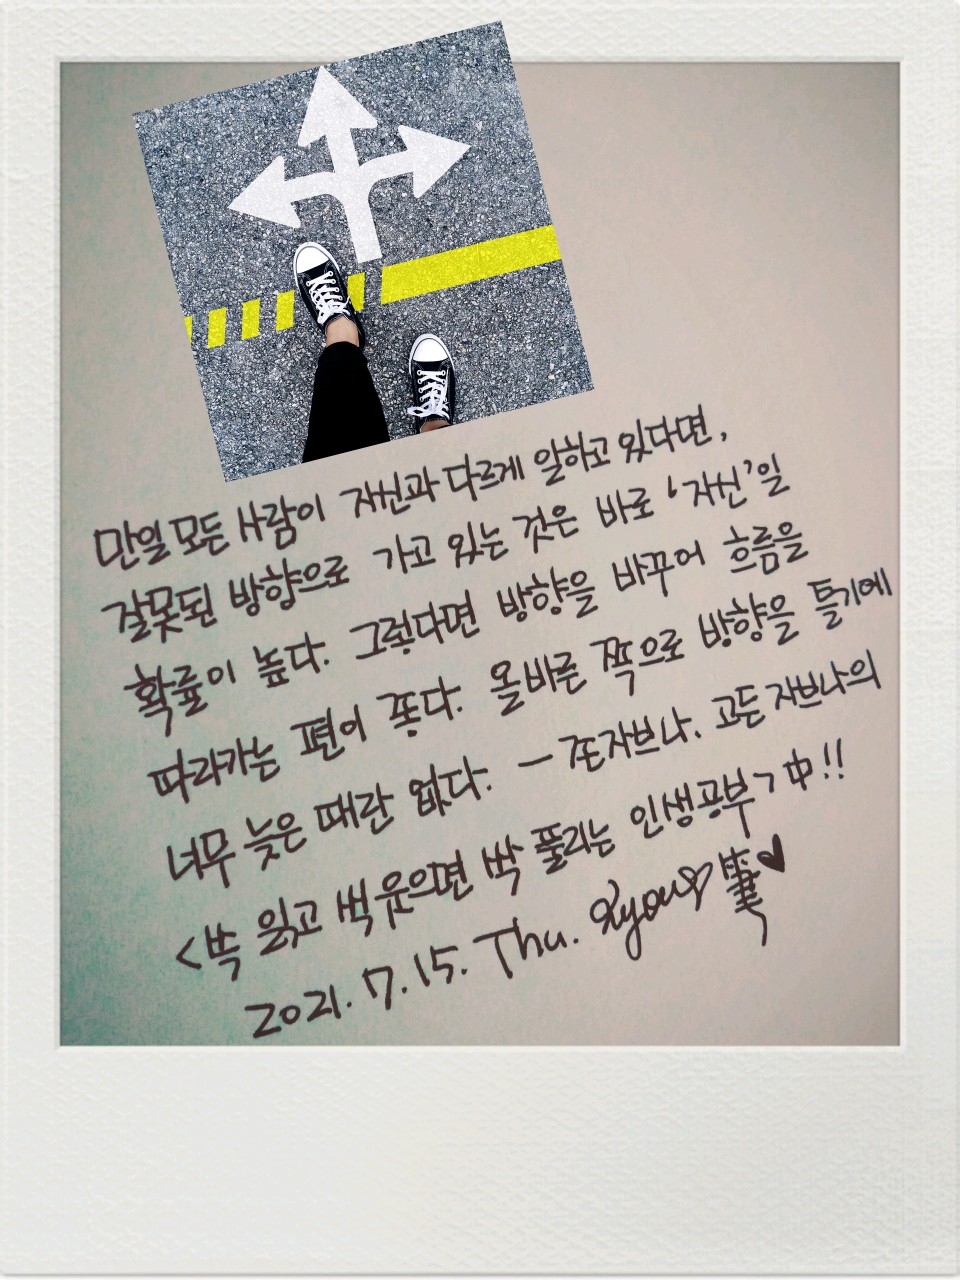 만일 모든 사람이 자신과 다르게 일하고 있다면,
잘못된 방향으로 가고 있는 것은 바로 '자신'일
확률이 높다. 그렇다면 방향을 바꾸어 흐름을
따라가는 편이 좋다. 올바른 쪽으로 방향을 틀기에
너무 늦은 때란 없다. - 존자브나. 고든 자브나의
<쓱 읽고 씩 웃으면 싹 풀리는 인생공부> 中!!
2021. 7. 15. Thu.